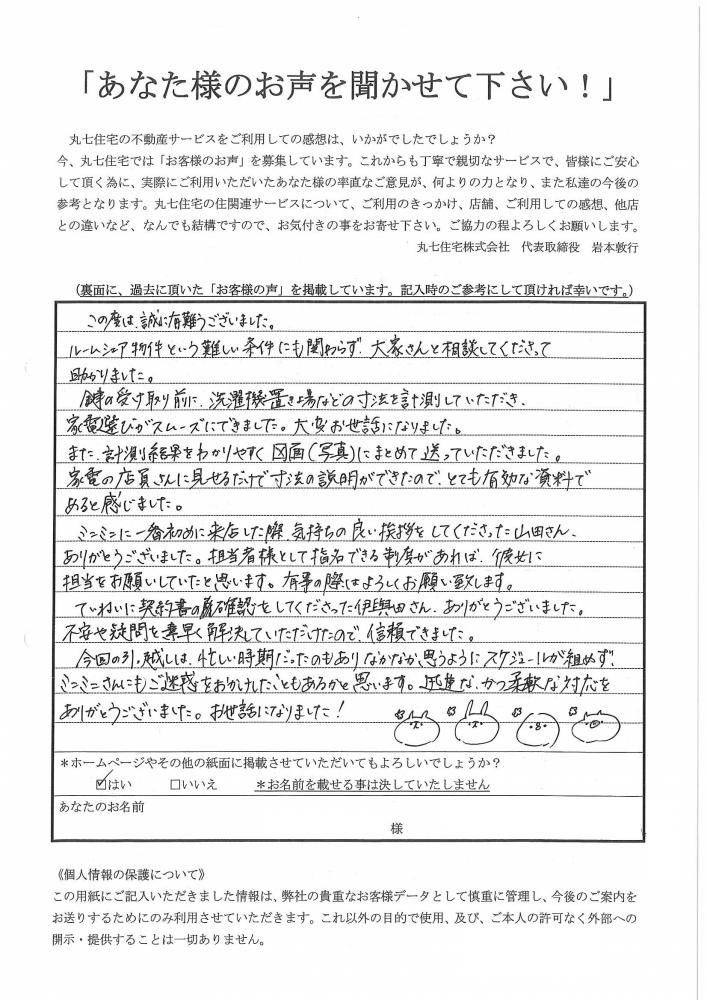 「あなた様のお声を聞かせて下さい！」
丸七住宅の不動産サービスをご利用しての感想は、いかがでしたでしょうか？
今、丸七住宅では「お客様のお声」を募集しています。これからも丁寧で親切なサービスで、皆様にご安心
して頂く為に、実際にご利用いただいたあなた様の率直なご意見が、何よりの力となり、また私達の今後の
参考となります。丸七住宅の住関連サービスについて、ご利用のきっかけ、店舗、ご利用しての感想、他店
との違いなど、なんでも結構ですので、お気付きの事をお寄せ下さい。ご協力の程よろしくお願いします。
丸七住宅株式会社　代表取締役　岩本敦行
（裏面に、過去に頂いた「お客様の声」を掲載しています。記入時のご参考にして頂ければ幸いです。）
この度は、誠に有難うございました。
ルームシェア物件という難しい条件にも関わらず、大家さんと相談してくださって
助かりました。
鍵の受け取り前に、洗濯機置き場などの寸法を計測していただき、
家電選びがスムーズにできました。大変お世話になりました。
また、計測結果をわかりやすく図面(写真)にまとめて送っていただきました。
家電の店員さんに見せるだけで寸法の説明ができたので、とても有効な資料で
あると感じました。
ミニミニに一番初めに来店した際、気持ちの良い挨拶をしてくださった山田さん、
ありがとうございました。担当者様として指名できる制度があれば、彼女に
担当をお願いしていたと思います。有事の際はよろしくお願い致します。
ていねいに契約書の確認をしてくださった伊與田さん、ありがとうございました。
不安や疑問を素早く解決していただけたので、信頼できました。
今回の引っ越しは、忙しい時期だったのもありなかなか思うようにスケジュールが組めず、
ミニミニさんにもご迷惑をおかけしたこともあるかと思います。迅速な、かつ柔軟な対応を
ありがとうございました。お世話になりました！
＊ホームページやその他の紙面に掲載させていただいてもよろしいでしょうか？
☑はい　□いいえ　＊お名前を載せる事は決していたしません
あなたのお名前
様
《個人情報の保護について》
この用紙にご記入いただきました情報は、弊社の貴重なお客様データとして慎重に管理し、今後のご案内を
お送りするためにのみ利用させていただきます。これ以外の目的で使用、及び、ご本人の許可なく外部への
開示・提供することは一切ありません。